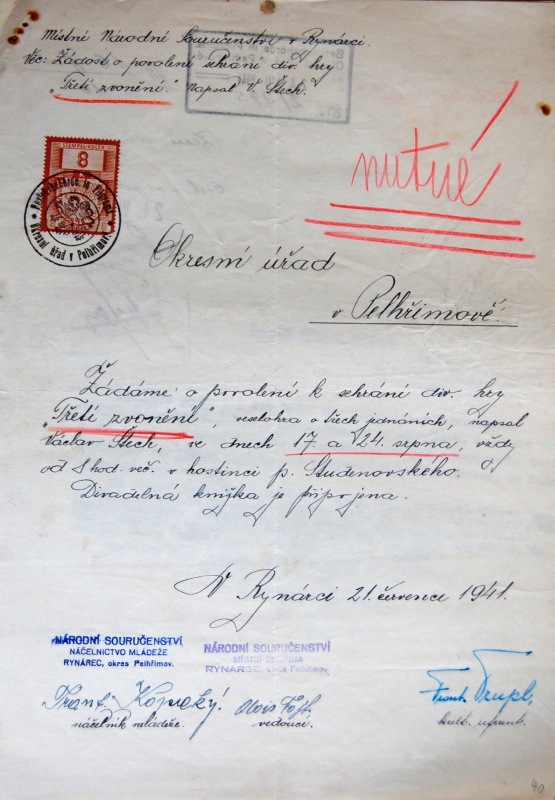 Místní Národní Souručenství v Rynárci.
Věc: Žádost o povolení sehrání div. hry
"Třetí zvonění." Napsal V. Štech.
STEMPEL-KOLEK
8
Úřední úřad v Pelhřimově
nutné
Okresní úřad
v Pelhřimově.
Žádáme o povolení k sehrání div. hry
"Třetí zvonění", veselohra o třech jednáních, napsal
Václav Štech, ve dnech 17. a 24. srpna, vždy
od 8 hod. več. v hostinci p. Studenovského.
Divadelná knížka je připojena.
V Rynárci 21. července 1941.
NÁRODNÍ SOURUČENSTVÍ
NÁČELNICTVO MLÁDEŽE
RYNÁREC, okres Pelhřimov.
NÁRODNÍ SOURUČENSTVÍ
MÍSTNÍ
RYNÁREC, okres Pelhřimov.
Frant. Kopecký.
náčelník mládeže.
Alois
vedoucí.
Frant.
kult. referent.
40